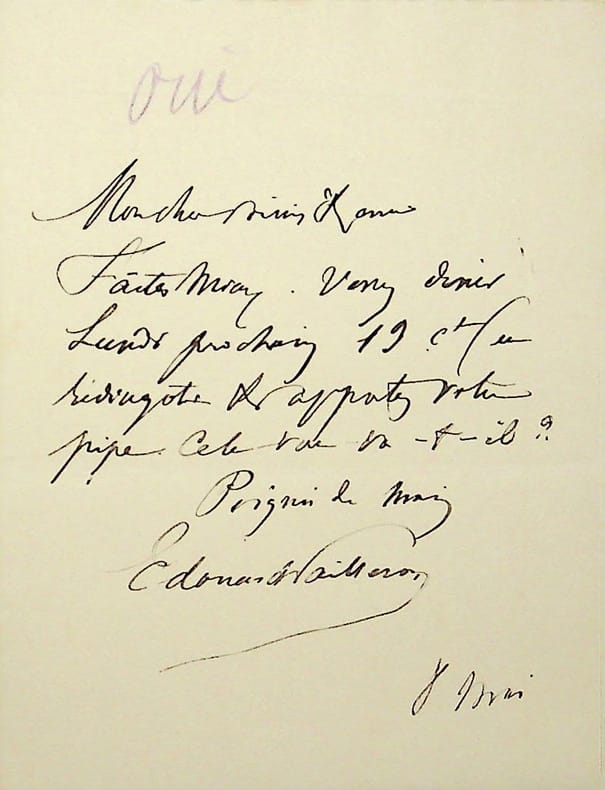 oui
Mon cher
Faites mieux. Venez diner
Lundi prochain 19 ct (en
redingote & apportez votre
pipe. Cela vous va-t-il ?
Poignée de main
Edouard Pailleron
Mai